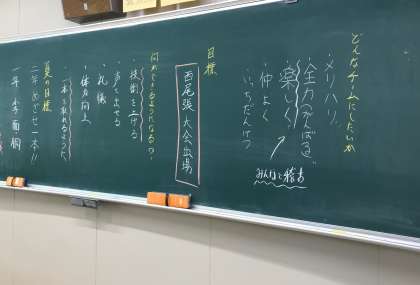 どんなチームにしたいか
・メリハリ
・全力でがんばる
・楽しく！
・仲よく
・いっちだんけつ
みんなで稽古
目標
西尾張大会出場
何ができるようになるか？
・技術を上げる
・声を出せる
・礼儀
・体力向上
・一本を取れるように
夏の目標
二年めざせ一本!!
一年 小手・面・胴